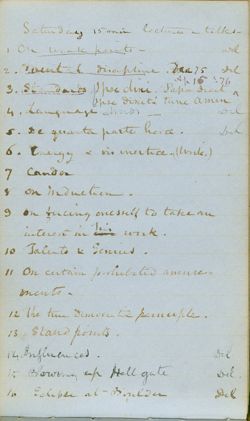 Saturday 15 min lectures & talks -
1 On weak points - Del
2. Mental discipline. Dec 75 Del
Ap 15 '76
3. Standards Ipse dixi. Papa dixit
Ipse dixit tune Amen
4. Language - Del
5. De quarta parte horæ. Del
6. Energy & vis inertiæ.
7 Candor
8 On Induction.
9 On forcing oneself to take an
interest in his work.
10 Talents & Genius.
11 On certain prohibited amuse-
ments.
12 The true Democratic principle.
13. Stand points.
14. Influences. Del
15 Blowing up Hell gate Del.
16 Eclipse at Boulder Del